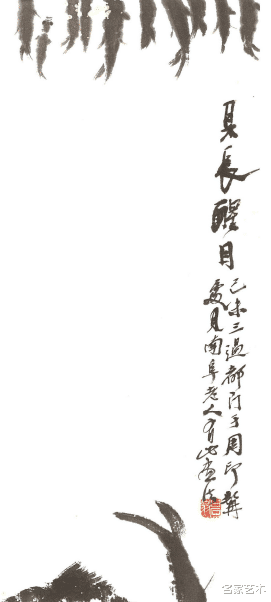 夏長醒目
己未三過都門于周印龔
處見南阜老人有此畫法
名家艺术